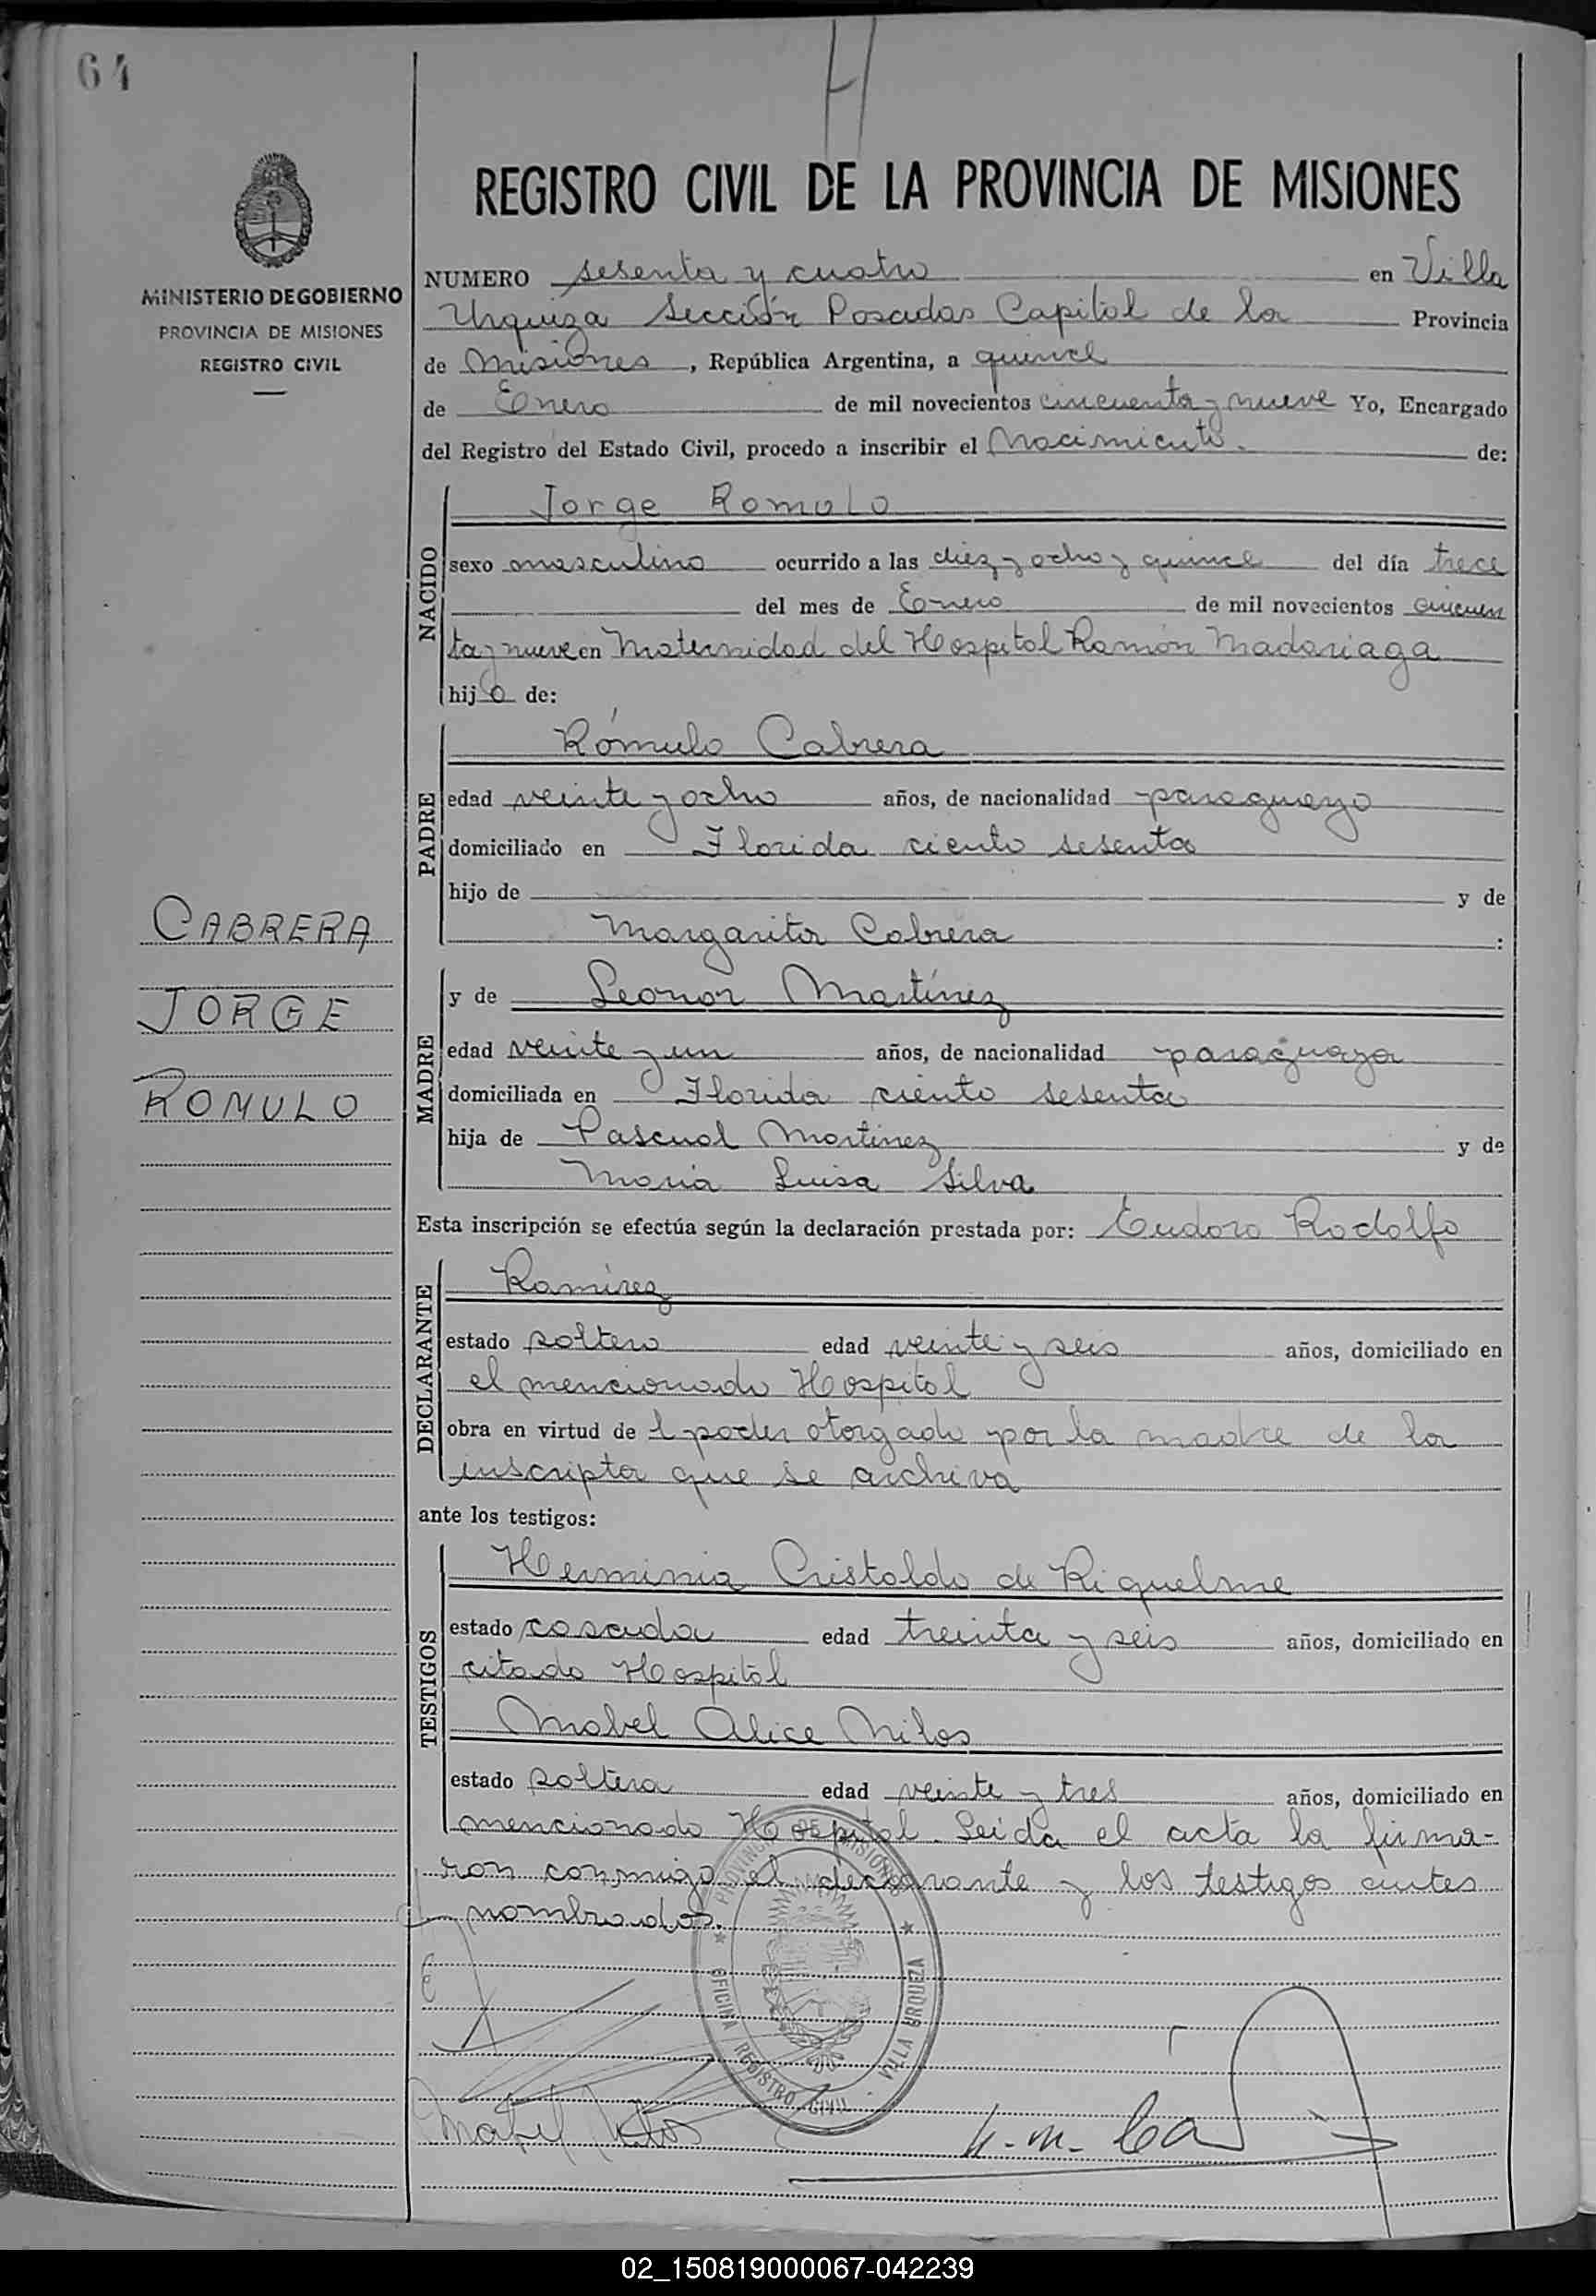 64
H
REGISTRO CIVIL DE LA PROVINCIA DE MISIONES
MINISTERIO DE GOBIERNO
PROVINCIA DE MISIONES
REGISTRO CIVIL
NUMERO sesenta y cuatro en Villa
Urquiza Sección Posadas Capital de la Provincia
de Misiones, República Argentina, a quince
de Enero de mil novecientos cincuenta y nueve Yo, Encargado
del Registro del Estado Civil, procedo a inscribir el Nacimiento. de:
NACIDO
Jorge Romulo
sexo masculino ocurrido a las diez y ocho y quince del día trece
del mes de Enero de mil novecientos cincuen
ta y nueve en Maternidad del Hospital Ramón Madariaga
hijo de:
PADRE
Rómulo Cabrera
edad veinte y ocho años, de nacionalidad paraguayo
domiciliado en Florida ciento sesenta
hijo de y de
Margarita Cabrera :
CABRERA
JORGE
ROMULO
MADRE
y de Leonor Martínez
edad veinte y un años, de nacionalidad paraguaya
domiciliada en Florida ciento sesenta
hija de Pascual Martinez y de
Maria Luisa Silva
Esta inscripción se efectúa según la declaración prestada por: Eudoro Rodolfo
DECLARANTE
Ramírez
estado soltero edad veinte y seis años, domiciliado en
el mencionado Hospital
obra en virtud de l poder otorgado por la madre de la
inscripta que se archiva
ante los testigos:
TESTIGOS
Herminia Cristaldo de Riquelme
estado casada edad treinta y seis años, domiciliado en
citado Hospital
Mabel Alice Milos
estado soltera edad veinte y tres años, domiciliado en
mencionado Hospital. Leida el acta la firma-
ron conmigo el declarante y los testigos antes
nombrados.
PROVINCIA DE MISIONES
OFICINA REGISTRO CIVIL VILLA URQUIZA
Mabel Milos
02_150819000067-042239